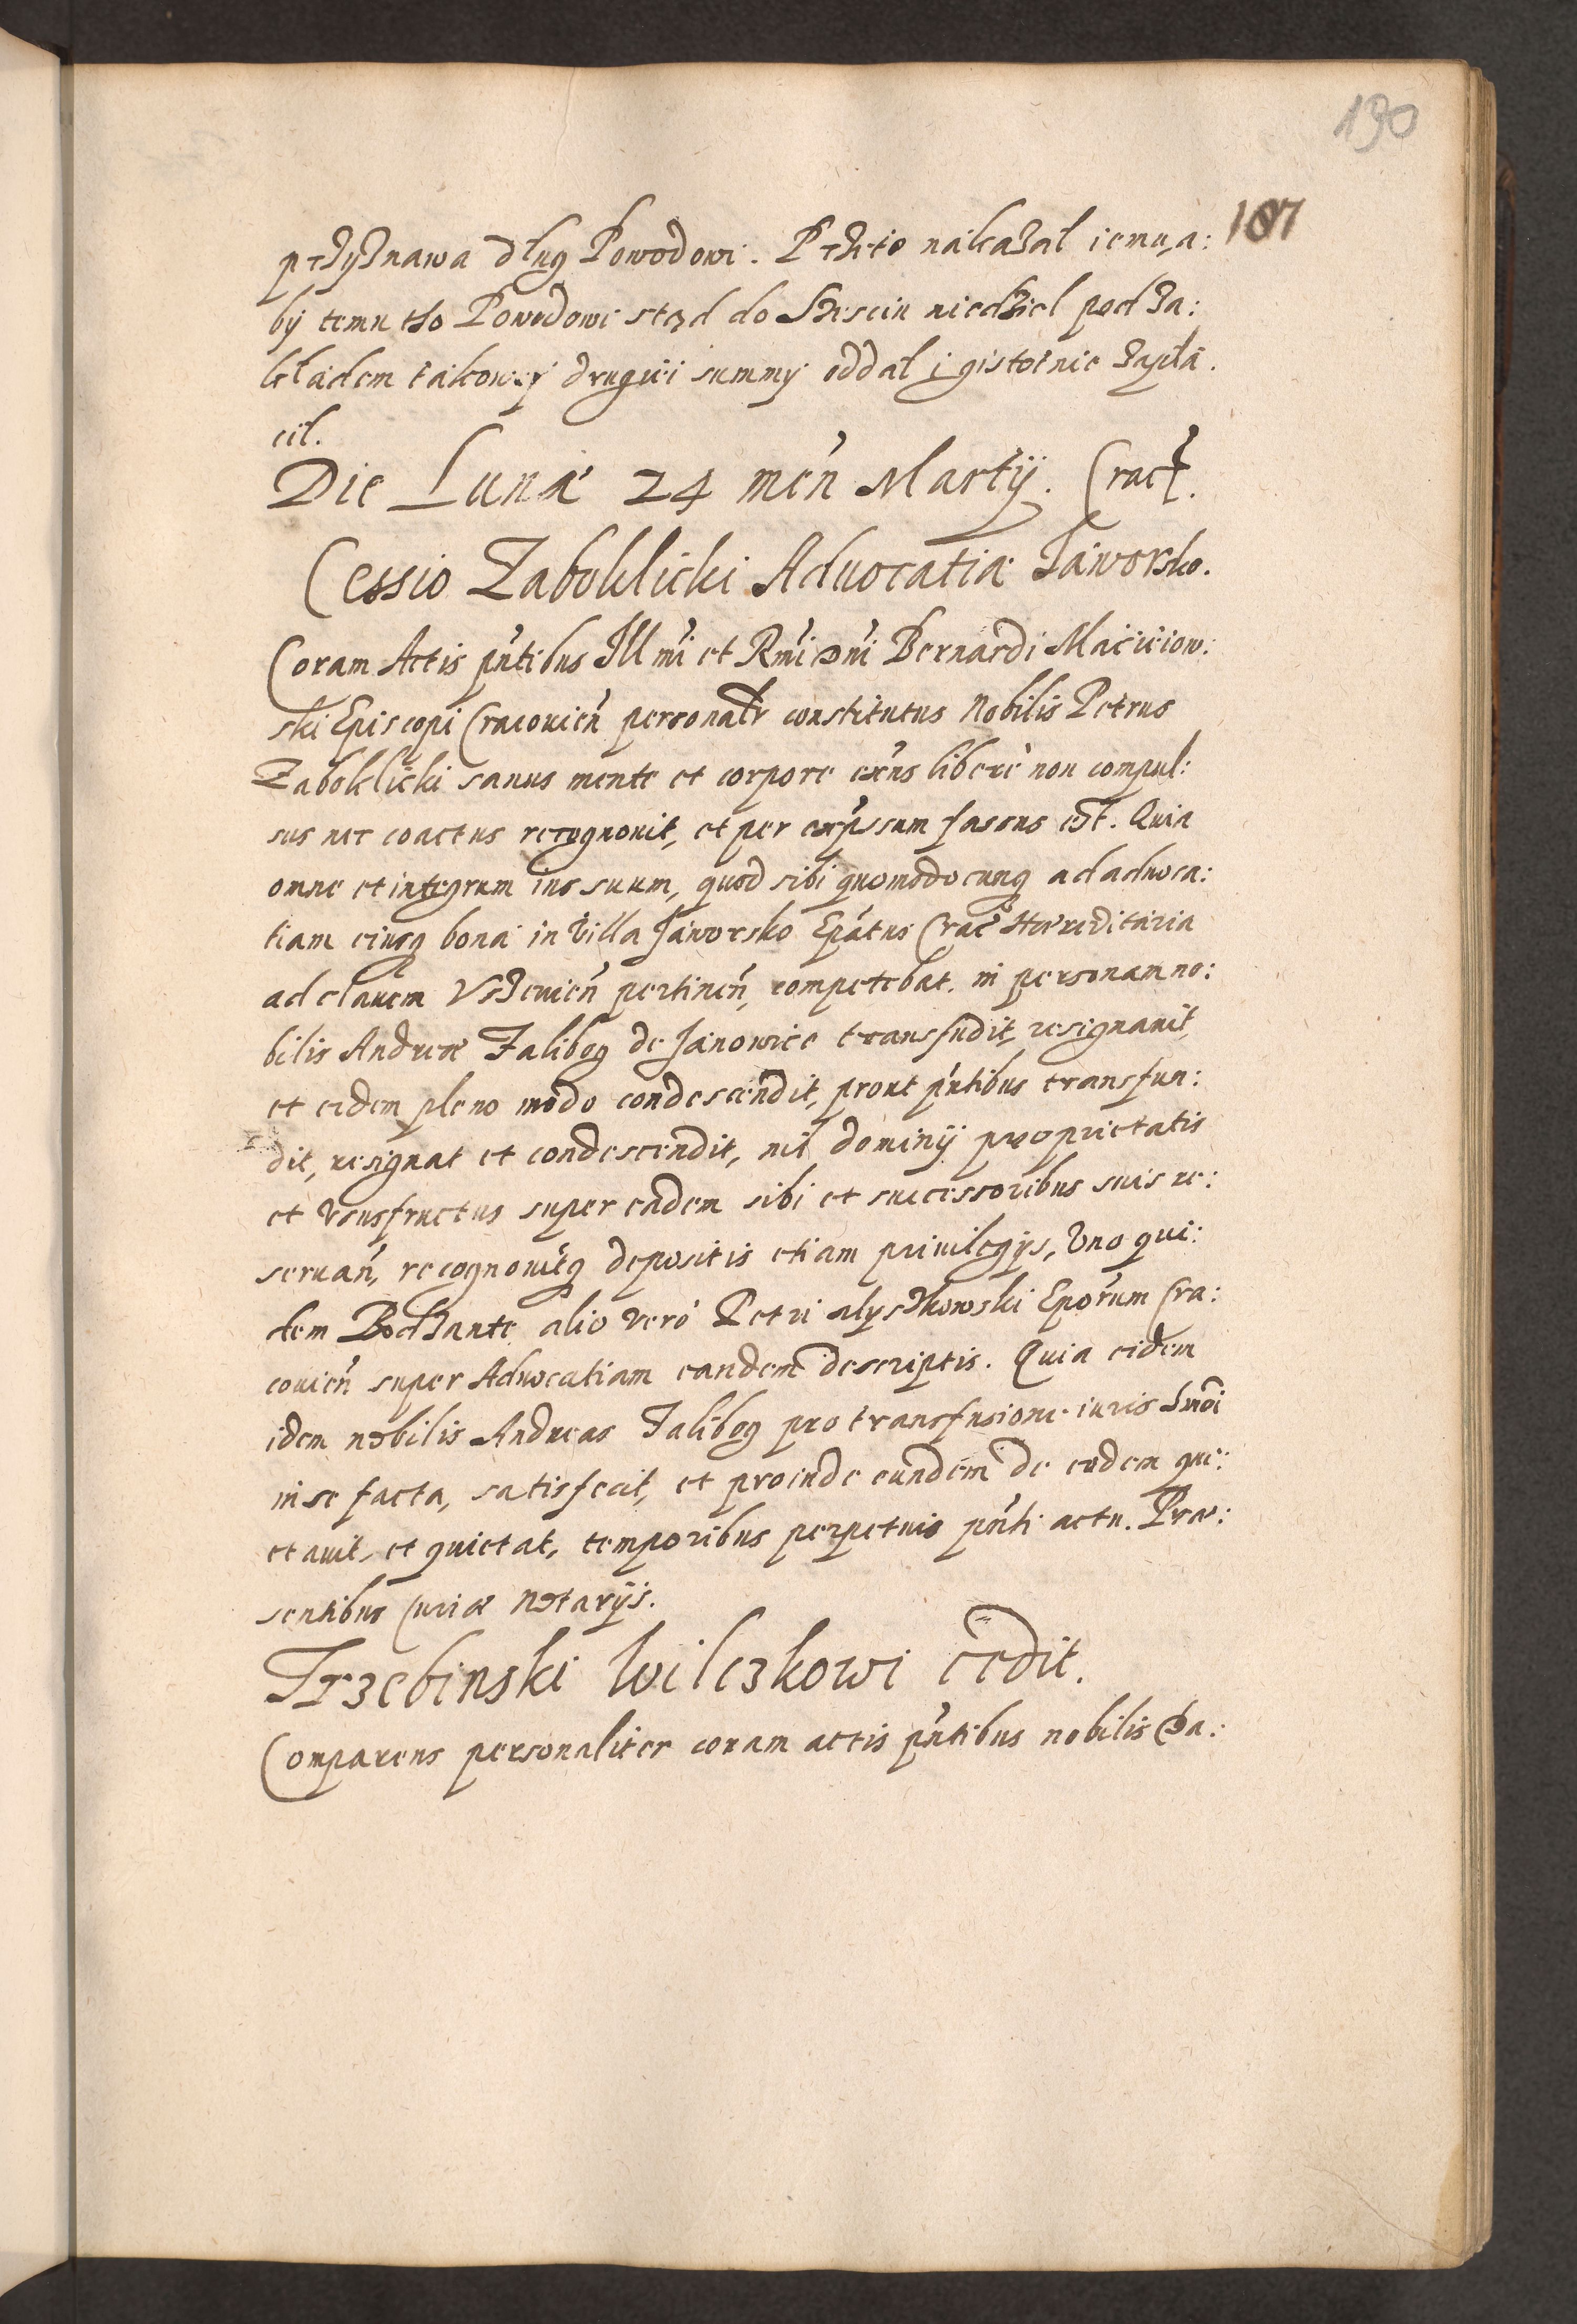 190
187
przyznawa dług Powodowi. Przeto nakazał iemu, a:
by temu tho Powodowi stąd do szesciu niedziel pod za:
kładem takowej drugiei summy oddał i gistotnie zapła.
cil.
Die Lunæ 24 men̄ Martij. Crac̄.
Cessio Zaboklicki Aduocatiæ Jaworsko.
Coram Actis pn̄tibus Illm̄i et Rm̄i Dn̄i Bernardi Macieiow:
ski Episcopi Cracouien̄ personalr̄ constitutus Nobilis Petrus
Zaboklicki sanus mente et corpore exn̄s liberè non compul:
sus nec coactus recognouit, et per exp̄ssum fassus est. Quia
omne et integrum ius suum, quod sibi quomodocunq̨ ad aduoca:
tiam eiusq̨ bona in Villa Jaworsko Ep̄atus Crac̄ Hæreditaria
ad clauem Vszeuien̄ pertinen̄, competebat, in personam no:
bilis Andreæ Falibog de Janowice transfudit, resignauit,
et eidem pleno modo condescendit, prout pn̄tibus transfun:
dit, resignat et condescendit, nil dominij proprietatis
et Vsusfructus super eadem sibi et successoribus suis re:
seruan̄, recognouitq̨ depositis etiam priuilegijs, Vno qui:
dem Bodzante alio verò Petri Myszkowski Epōrum Cra:
couien̄ super Aduocatiam eandem descriptis. Quia eidem
idem nobilis Andreas Falibog pro transfusione iuris hm̄oi
in se facta, satisfecit, et proinde eundem de eodem qui:
etauit, et quietat, temporibus perpetuis pn̄ti actu. Præ:
sentibus Curiæ Notarijs.
Trzebinski Wilczkowi cedit.
Comparens personaliter coram actis pn̄tibus nobilis Da: